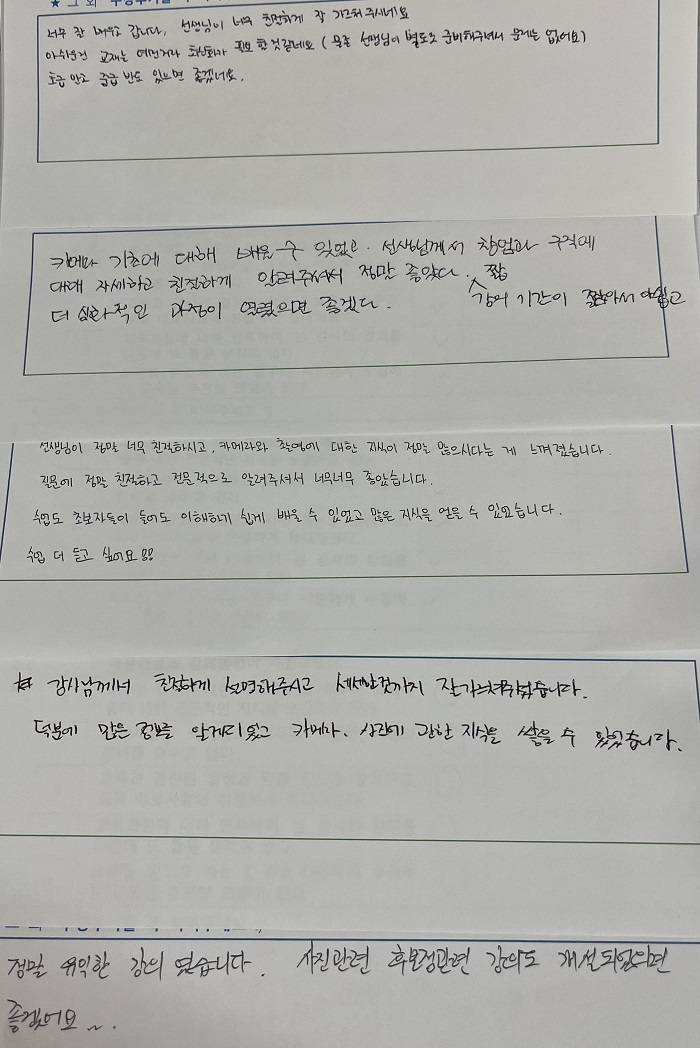 너무 잘 배우고 갑니다, 선생님이 너무 친절하게 잘 가르쳐주시네요
아쉬운건 교재는 어떤거라 최신화가 필요한것같네요 (물론 선생님이 별도로 준비해주셔서 문제는 없어요)
초급 말고 중급 반도 있으면 좋겠네요.
카메라 기초에 대해 배울 수 있었고. 선생님께서 창업과 구직에
대해 자세하고 친절하게 알려주셔서 정말 좋았다. 짧
더 심화적인 과정이 열렸으면 좋겠다. 강의 기간이 짧아서 아쉽고
선생님이 정말 너무 친절하시고, 카메라와 촬영에 대한 지식이 정말 많으시다는 게 느껴졌습니다.
질문에 정말 친절하고 전문적으로 알려주셔서 너무너무 좋았습니다.
수업도 초보자들이 들어도 이해하기 쉽게 배울 수 있었고 많은 지식을 얻을 수 있었습니다.
수업 더 듣고 싶어요!!
강사님께서 친절하게 설명해주시고 세세한것까지 잘 가르쳐주셨습니다.
덕분에 많은 정보를 알게되었고 카메라, 사진에 관한 지식을 쌓을 수 있었습니다.
정말 유익한 강의 였습니다. 사진관련 후보정관련 강의도 개설되었으면
좋겠어요 ~.